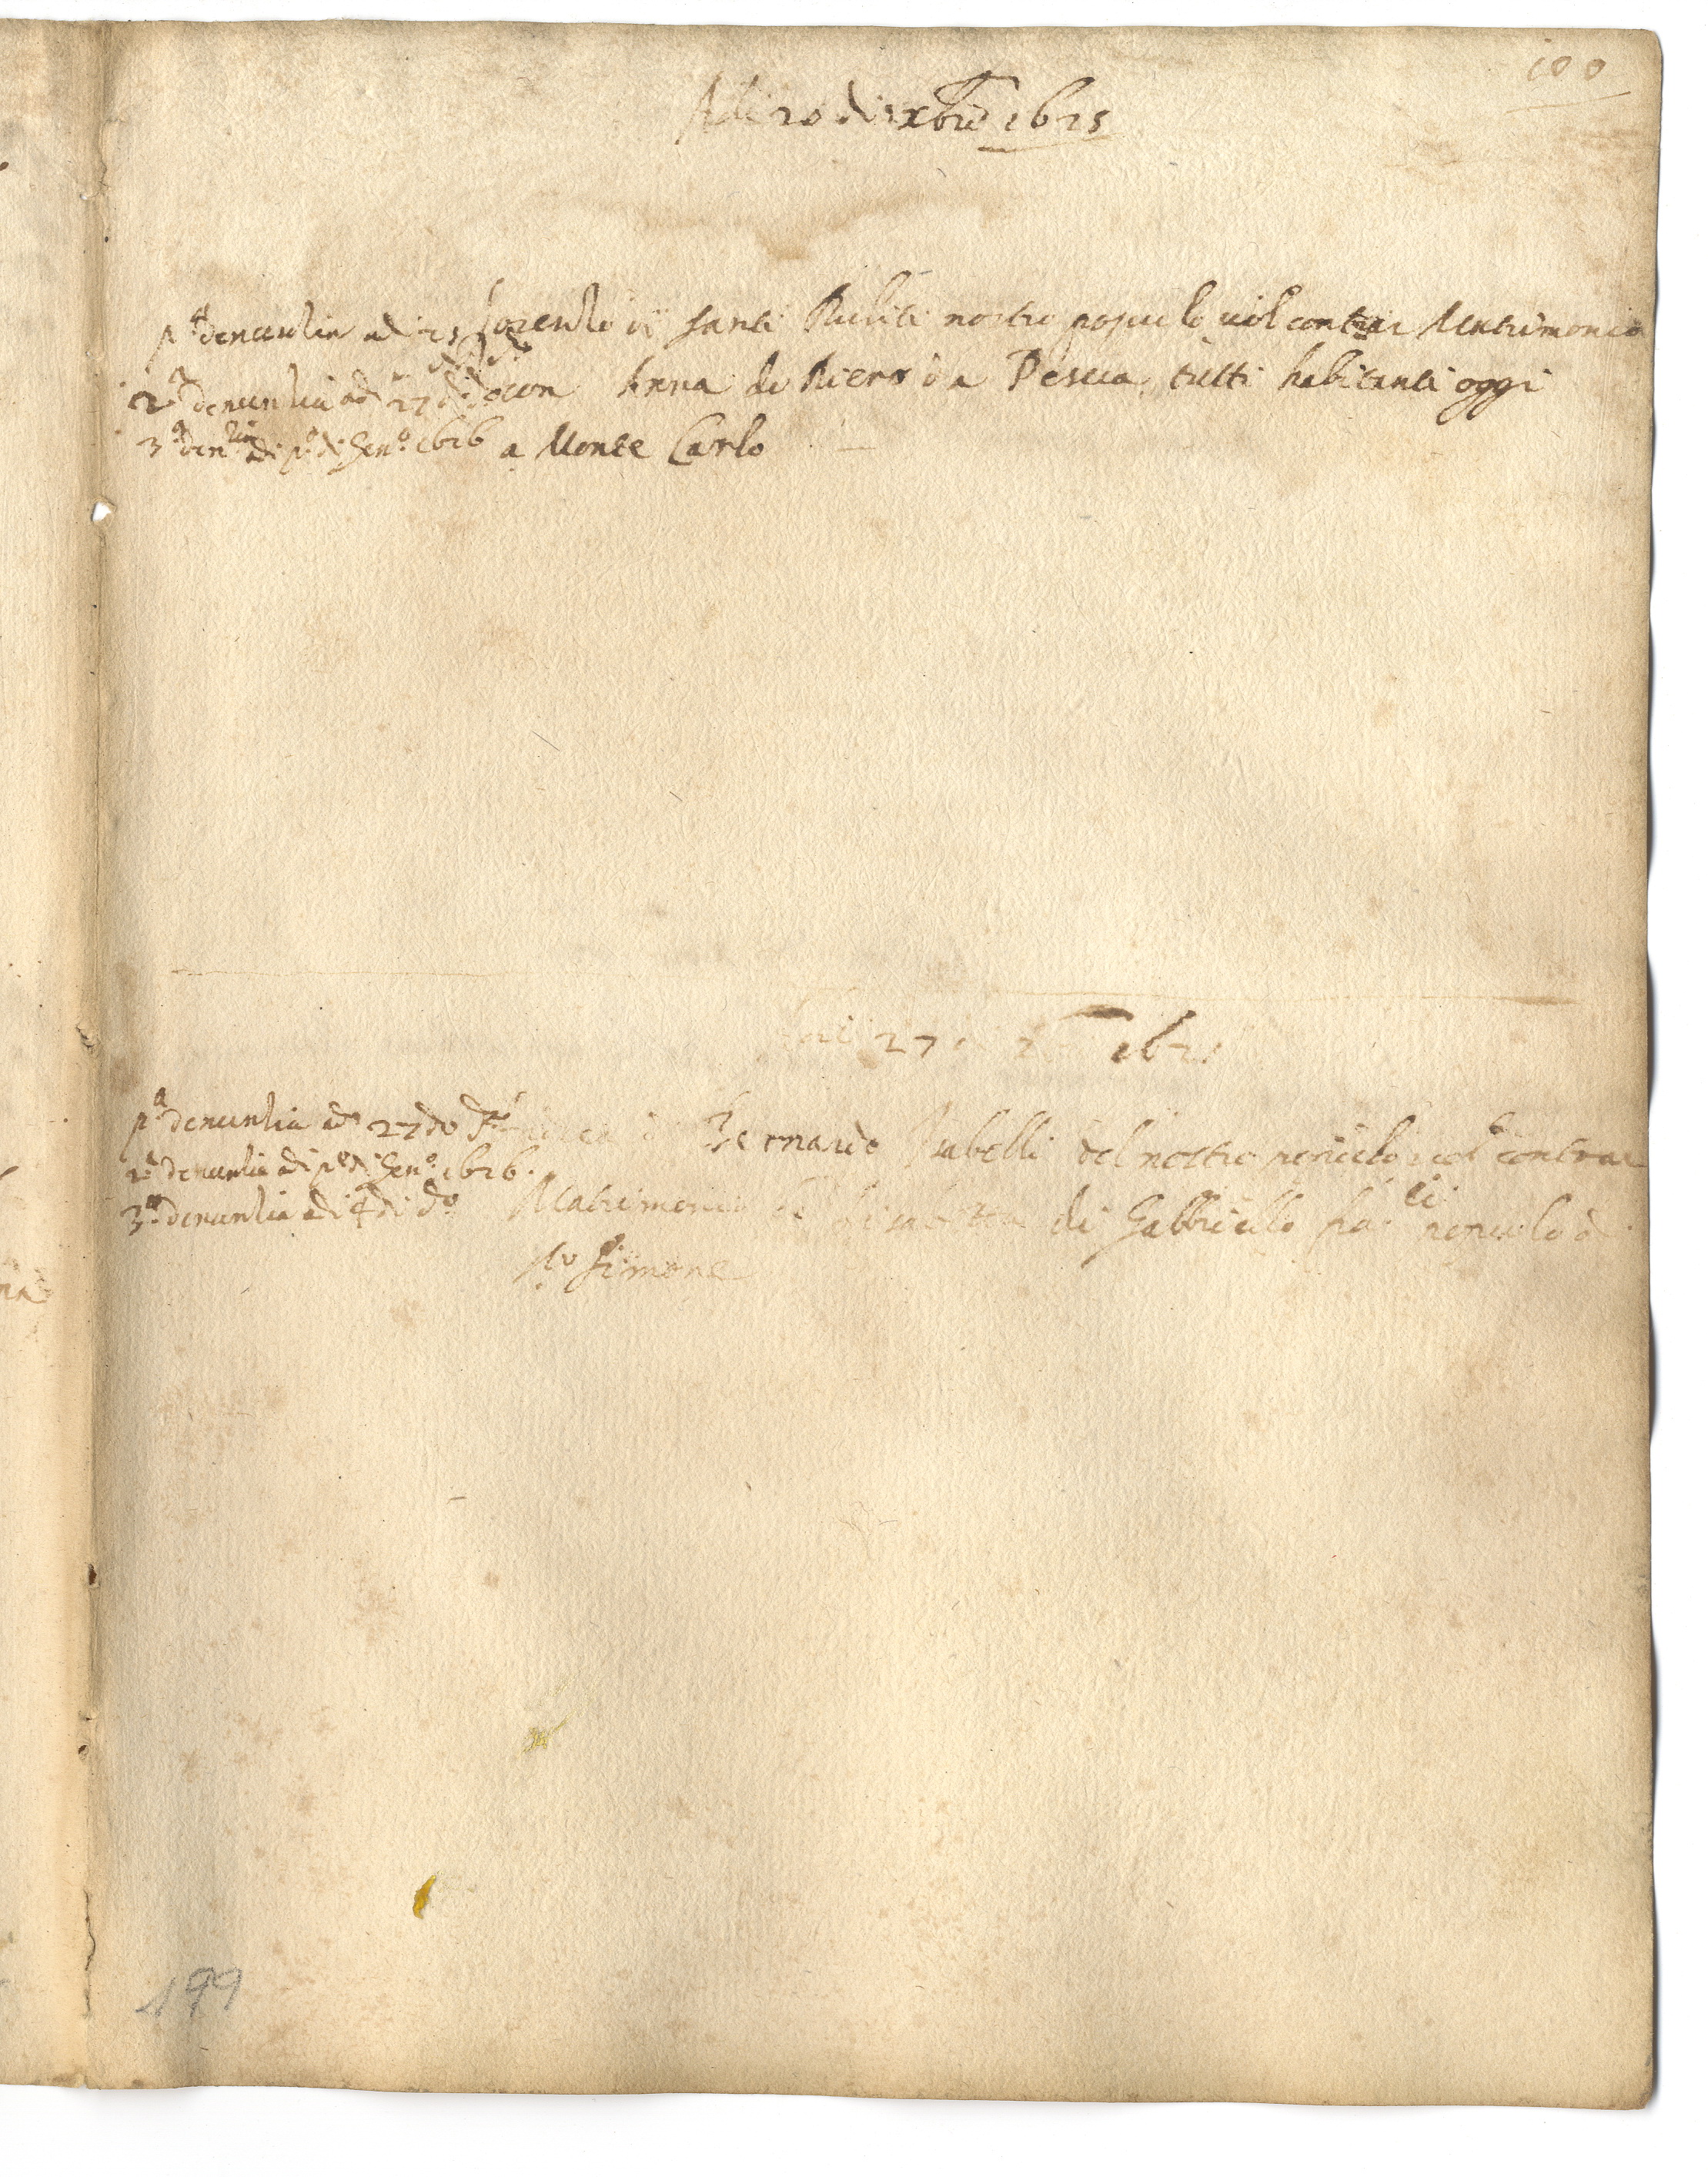 100
Adi 20 di xbre 1625
pa denuntia adi 25 Lorenzo di Santi nostro populo vol contrar Matrimonio
di do
2a denuntia adi 27 di do con Anna di Piero da Pescia tutti habitanti oggi
3a dentia adi po di Geno 1626 a Monte Carlo
Adi 27 1625
pa denuntia adi 27 do di Bernardo Isabelli del nostro populo vol contrar
2a denuntia adi po di Geno 1626.
3a denuntia adi 4 di do Matrimonio di Gabbriello populo di
sto Simone
199